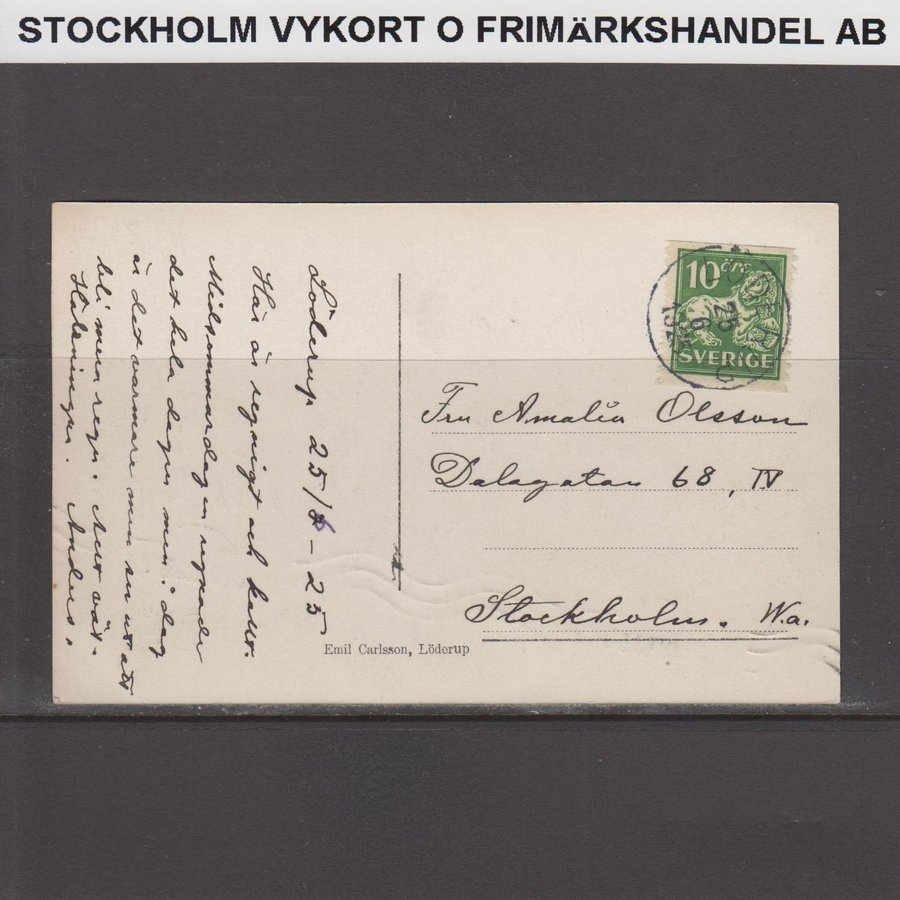 STOCKHOLM VYKORT O FRIMÄRKSHANDEL AB
Löderup 25/6-25
Här är regnigt och kallt.
Midsommardagen regnade
det hela dagen men i dag
är det varmare men ser ut att
bli mera regn.
Hälsningar. Anders.
10 ÖRE
SVERIGE
LÖDERUP
25
6
192
Fru Amalia Olsson
Dalagatan 68, IV
Stockholm. Va.
Emil Carlsson, Löderup